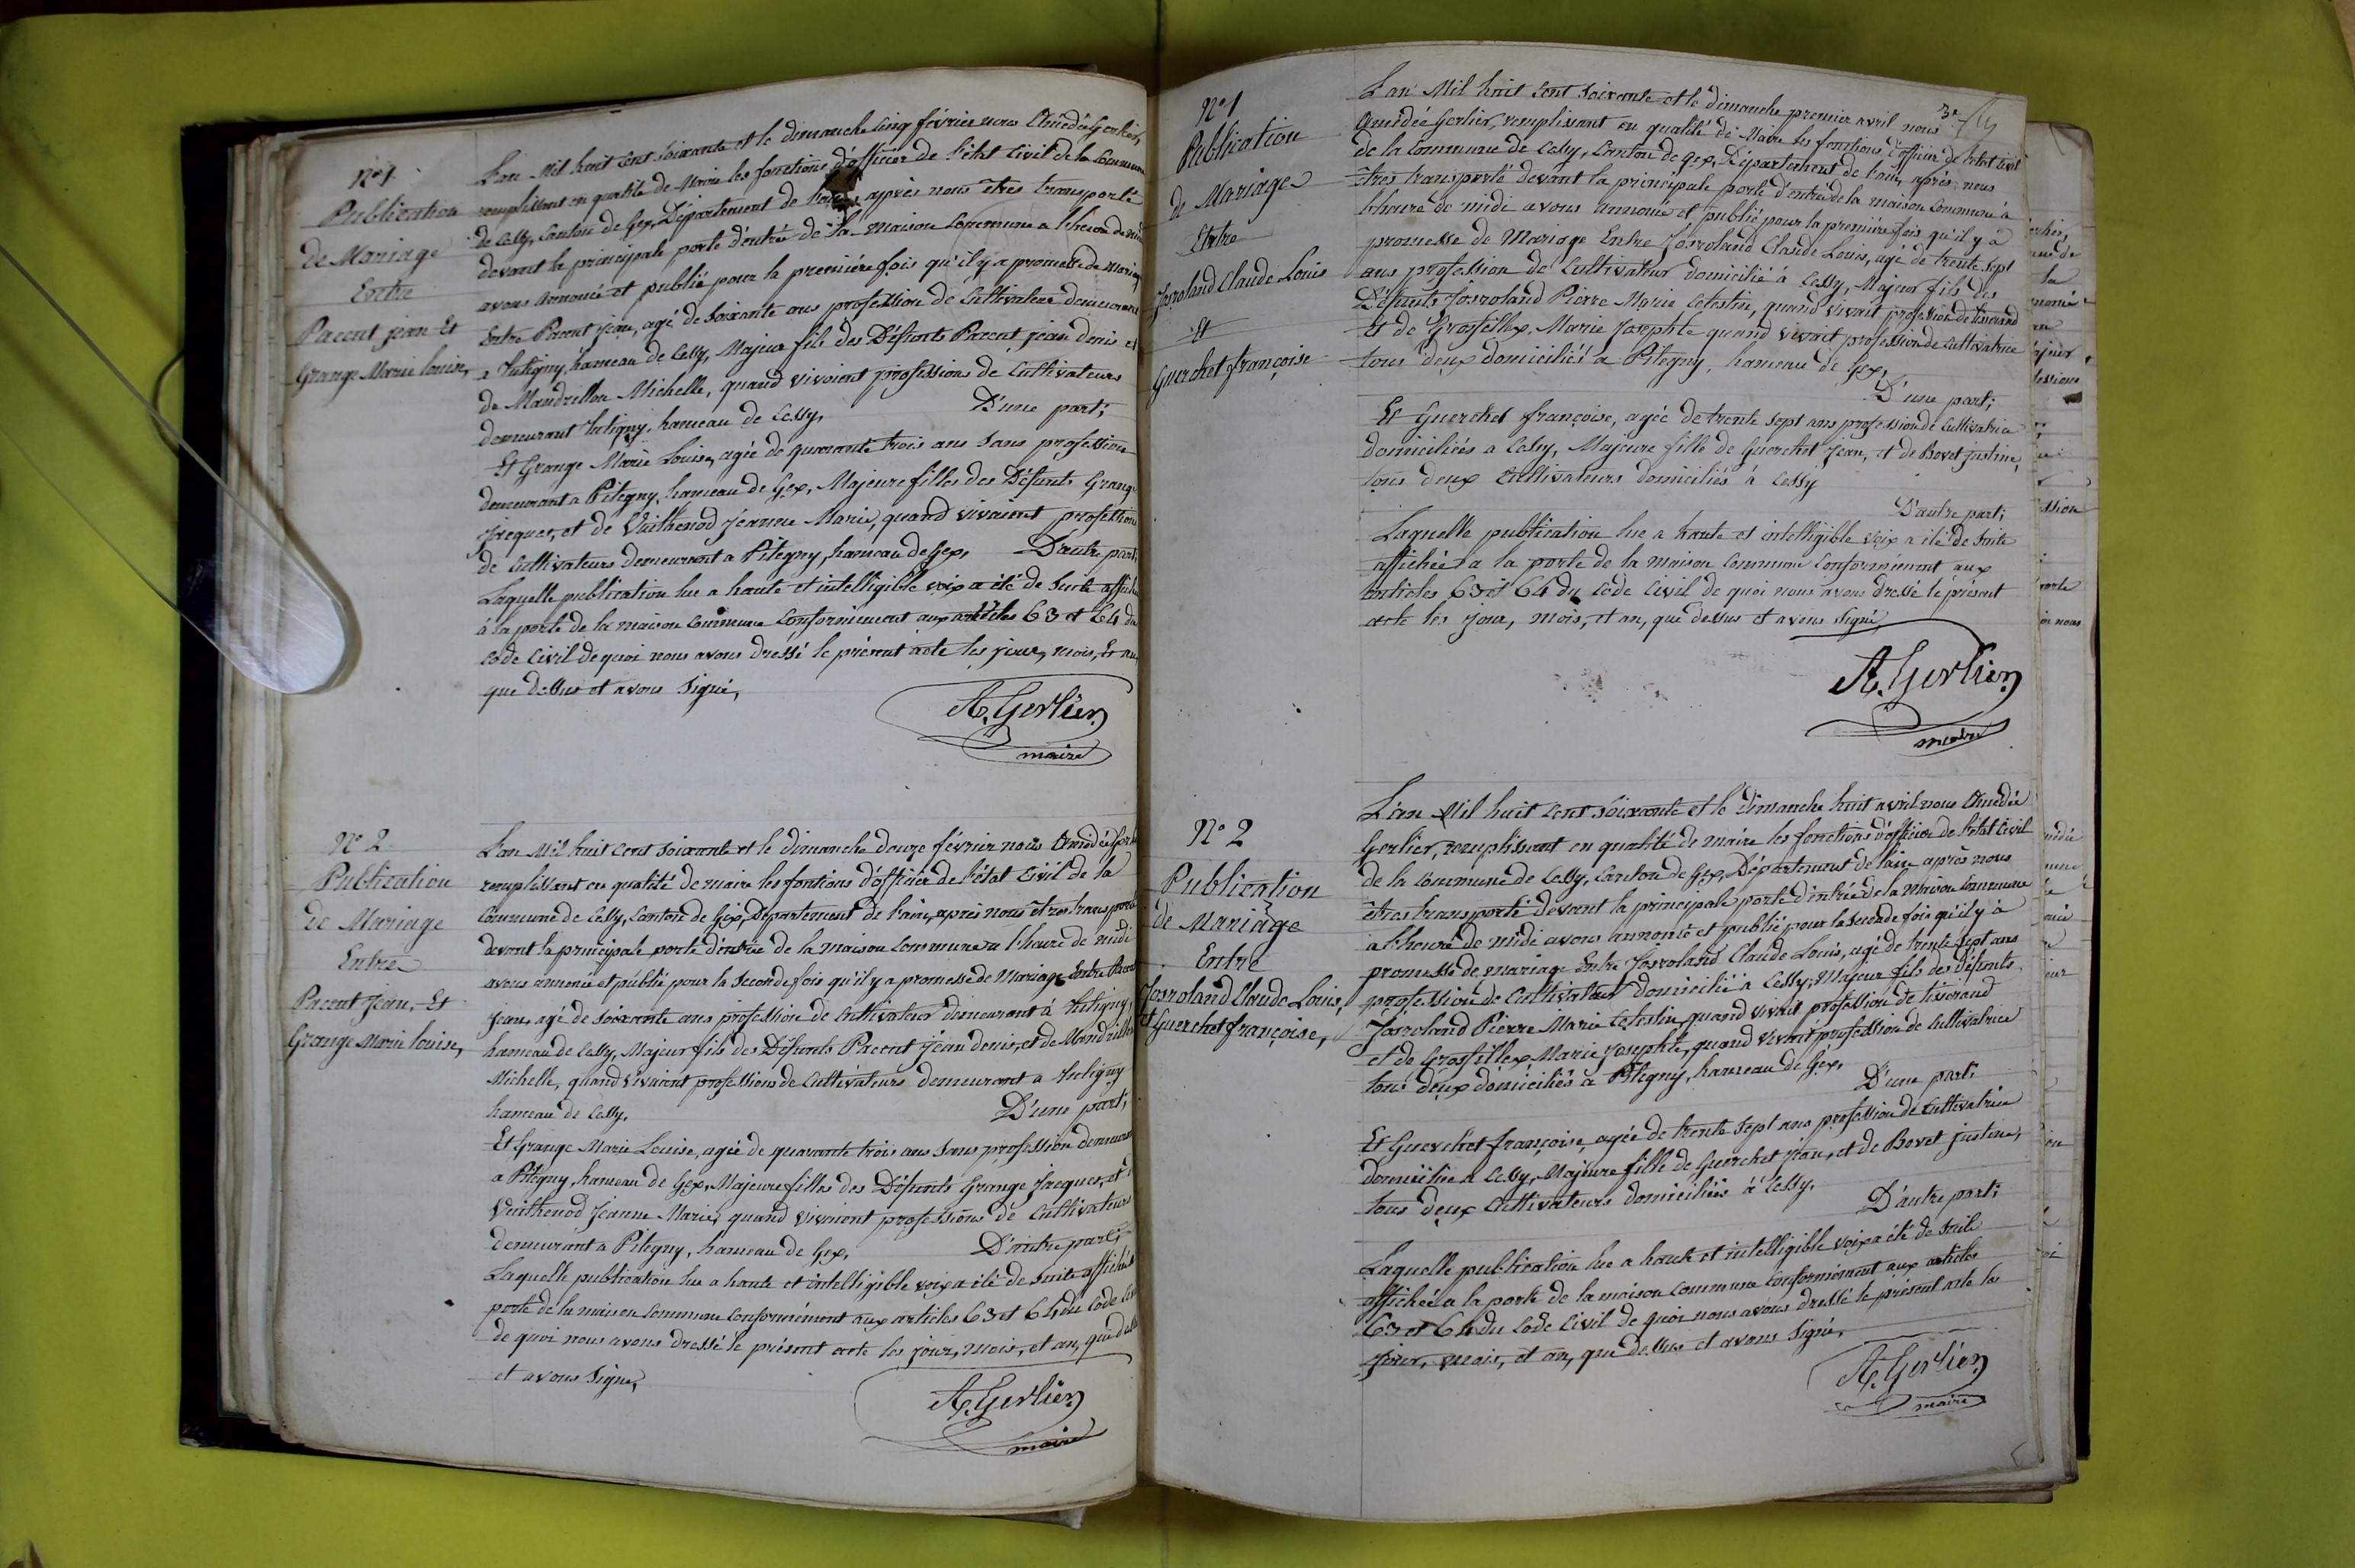 N° 1
Publication
de Mariage
Entre
Pacent jean Et
Grange Marie louise,
L'an Mil huit cent soixante et le dimanche cinq février nous Amédée Gerlier,
remplissant en qualité de Maire les fonctions d'officier de l'état civil de la Commune
de Cessy, Canton de Gex, Département de l'ain, après nous êtres transporté
devant la principale porte d'entré de la maison Commune a l'heure de midi
avons annoncé et publié pour la première fois qu'il y a promesse de mariage
Entre Pacent jean, agé de soixante ans profession de Cultivateur demeurant
a hameau de Cessy, Majeur fils des Défunts Pacent jean denis et
de Mandrillon Michelle, quand vivoient professions de Cultivateurs
demeurant hameau de Cessy, D'une part;
Et Grange Marie Louise, agée de quarante trois ans sans profession
demeurant a Pitegny, hameau de Gex, Majeure filles des Défunts Grange
jacques, et de Vuithenod jeanne Marie, quand vivaient profession
de Cultivateurs demeurant a Pitegny, hameau de Gex, D'autre part;
Laquelle publication lue a haute et intelligible voix a été de suite
à la porte de la maison Commune Conformément aux articles 63 et 64 du
Code Civil de quoi nous avons dressé le présent acte les jour, mois, Et an
que dessus et avons signé,
A. Gerlier
maire
N° 2
Publication
de Mariage
Entre
Pacent Jean, Et
Grange Marie louise,
L'an Mil huit Cent soixante et le dimanche douze février nous Amédée
remplissant en qualité de maire les fontions d'officier de l'état Civil de la
Commune de Cessy, Canton de Gex, Département de l'ain, après nous êtres transporté
devant la principale porte d'entrée de la maison Commune a l'heure de midi
avons annoncé et publié pour la seconde fois qu'il y a promesse de Mariage Entre Pacent
jean, agé de soixante ans profession de Cultivateur demeurant à
hameau de Cessy, Majeur fils des Défunts Pacent jean denis, et de Mandrillon
Michelle, quand vivaient professions de Cultivateurs demeurant a
hameau de Cessy. D'une part;
Et Grange Marie Louise, agée de quarante trois ans sans profession demeurant
a Pitegny, hameau de Gex, Majeure filles des Défunts Grange jacques, et
Vuithenod jeanne Marie, quand vivoient professions de Cultivateurs
demeurant a Pitegny, hameau de Gex, D'autre part;
Laquelle publication lue a haute et intelligible voix a été de suite affichée
porte de la maison Commune Conformément aux articles 63 et 64 du Code
de quoi nous avons dressé le présent acte les jour, mois, et an, que
et avons signé,
A. Gerlier
maire
3e
N° 1
Publication
de Mariage
Entre
Josroland Claude Louis
Et
Guerchet françoise
L'an Mil huit Cent soixante et le dimanche premier avril nous
Amédée Gerlier, remplissant en qualité de Maire les fonctions d'officier de l'état civil
de la Commune de Cessy, Canton de Gex, Département de l'ain, après nous
êtres transporté devant la principale porte d'entrée de la maison Commune à
l'heure de midi avons annoncé et publié pour la première fois qu'il y à
promesse de Mariage Entre Josroland Claude Louis, agé de trente sept
ans profession de Cultivateur domicilié à Cessy, Majeur fils des
Défunts Josroland Pierre Marie Celestin, quand vivait profession de tisserand
Et de Grosfillex Marie Josephte quand vivait profession de Cultivatrice
tous deux domiciliés a Pitegny, hameau de Gex,
D'une part;
Et Guerchet françoise, agée de trente sept ans profession de Cultivatrice
domiciliées a Cessy, Majeure fille de Guerchet Jean, et de Bovet justine,
tous deux Cultivateurs domiciliés à Cessy
D'autre part;
Laquelle publication lue a haute et intelligible voix a été de suite
affichée a la porte de la maison Commune Conformément aux
articles 63 et 64 du Code Civil de quoi nous avons dressé le présent
acte les jour, mois, et an, que dessus et avons signé,
A. Gerlier
maire
N° 2
Publication
de Mariage
Entre
Josroland Claude Louis,
et Guerchet françoise,
L'an Mil huit Cent soixante et le dimanche huit avril nous Amédée
Gerlier, remplissant en qualité de maire les fonctions d'officier de l'état Civil
de la Commune de Cessy, Canton de Gex, Département de l'ain après nous
êtres transporté devant la principale porte d'entrée de la Maison Commune
a l'heure de midi avons annoncé et publié pour la seconde fois qu'il y à
promesse de mariage Entre Josroland Claude Louis, agé de trente sept ans
profession de Cultivateur domicilié à Cessy, Majeur fils des défunts
Josroland Pierre Marie Celestin, quand vivait profession de tisserand
et de Grosfillex Marie Josephte, quand vivait profession de Cultivatrice
tous deux domiciliés a Pitegny, hameau de Gex, D'une part;
Et Guerchet françoise, agée de trente sept ans profession de Cultivatrice
domiciliée a Cessy, Majeure fille de Guerchet jean, et de Bovet justine,
tous deux Cultivateurs domiciliés à Cessy. D'autre part;
Laquelle publication lue a haute et intelligible voix a été de suite
affichée a la porte de la maison Commune Conformément aux articles
63 et 64 du Code Civil de quoi nous avons dressé le présent acte les
jour, mois, et an, que dessus et avons signé,
A. Gerlier
maire